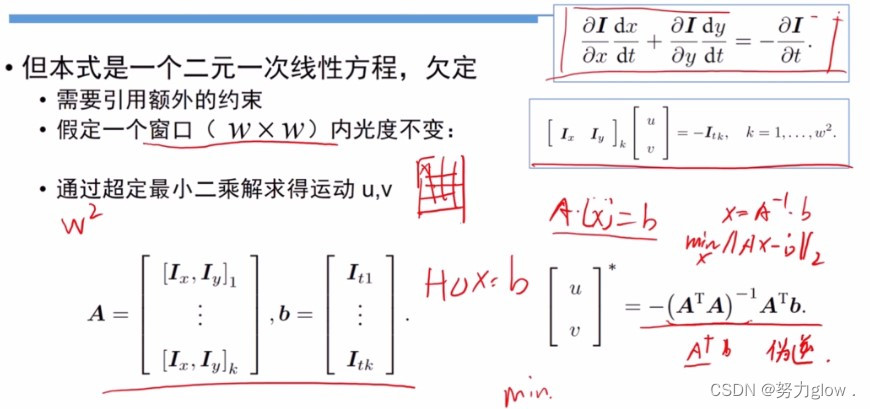 ∂I/∂x dx/dt + ∂I/∂y dy/dt = -∂I/∂t.
• 但本式是一个二元一次线性方程，欠定
• 需要引用额外的约束
• 假定一个窗口（ W×W）内光度不变：
[ Iₓ I_y ]_k [ u v ] = -I_{tk}, k = 1, …, w².
• 通过超定最小二乘解求得运动 u,v
W²
A·(x)=b
x=A⁻¹·b
min ‖Ax-b‖₂
x
A = [ [Iₓ, I_y]₁ ⋮ [Iₓ, I_y]_k ], b = [ I_{t1} ⋮ I_{tk} ].
x=b
[ u v ]* = -(AᵀA)⁻¹Aᵀb.
A†b 伪逆.
min.
CSDN @努力glow .